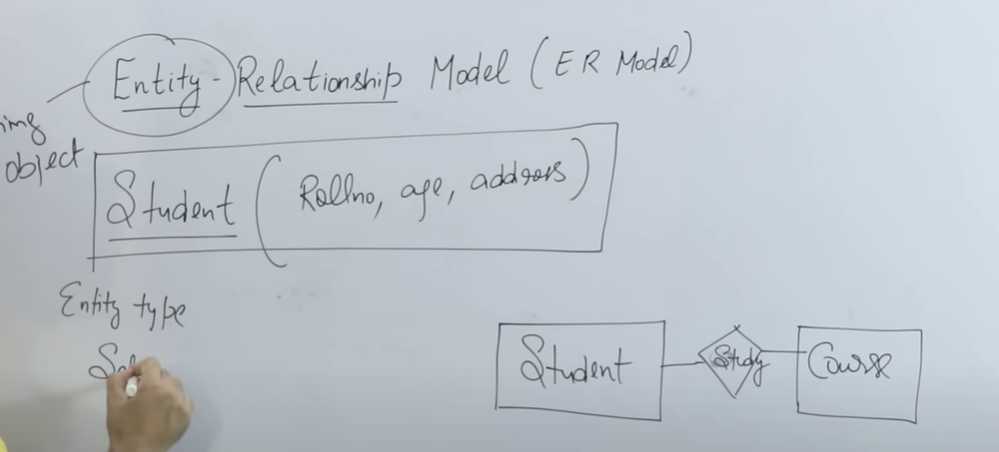 Entity - Relationship Model (ER Model)
object
Student (Rollno, age, address)
Entity type
Student Study Course